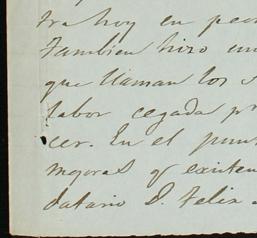 tra hoy en pod
Tambien hizo un
que llaman los s
labor cegada pr
cer. En el pun
mejoras q existen
datario D. Felix